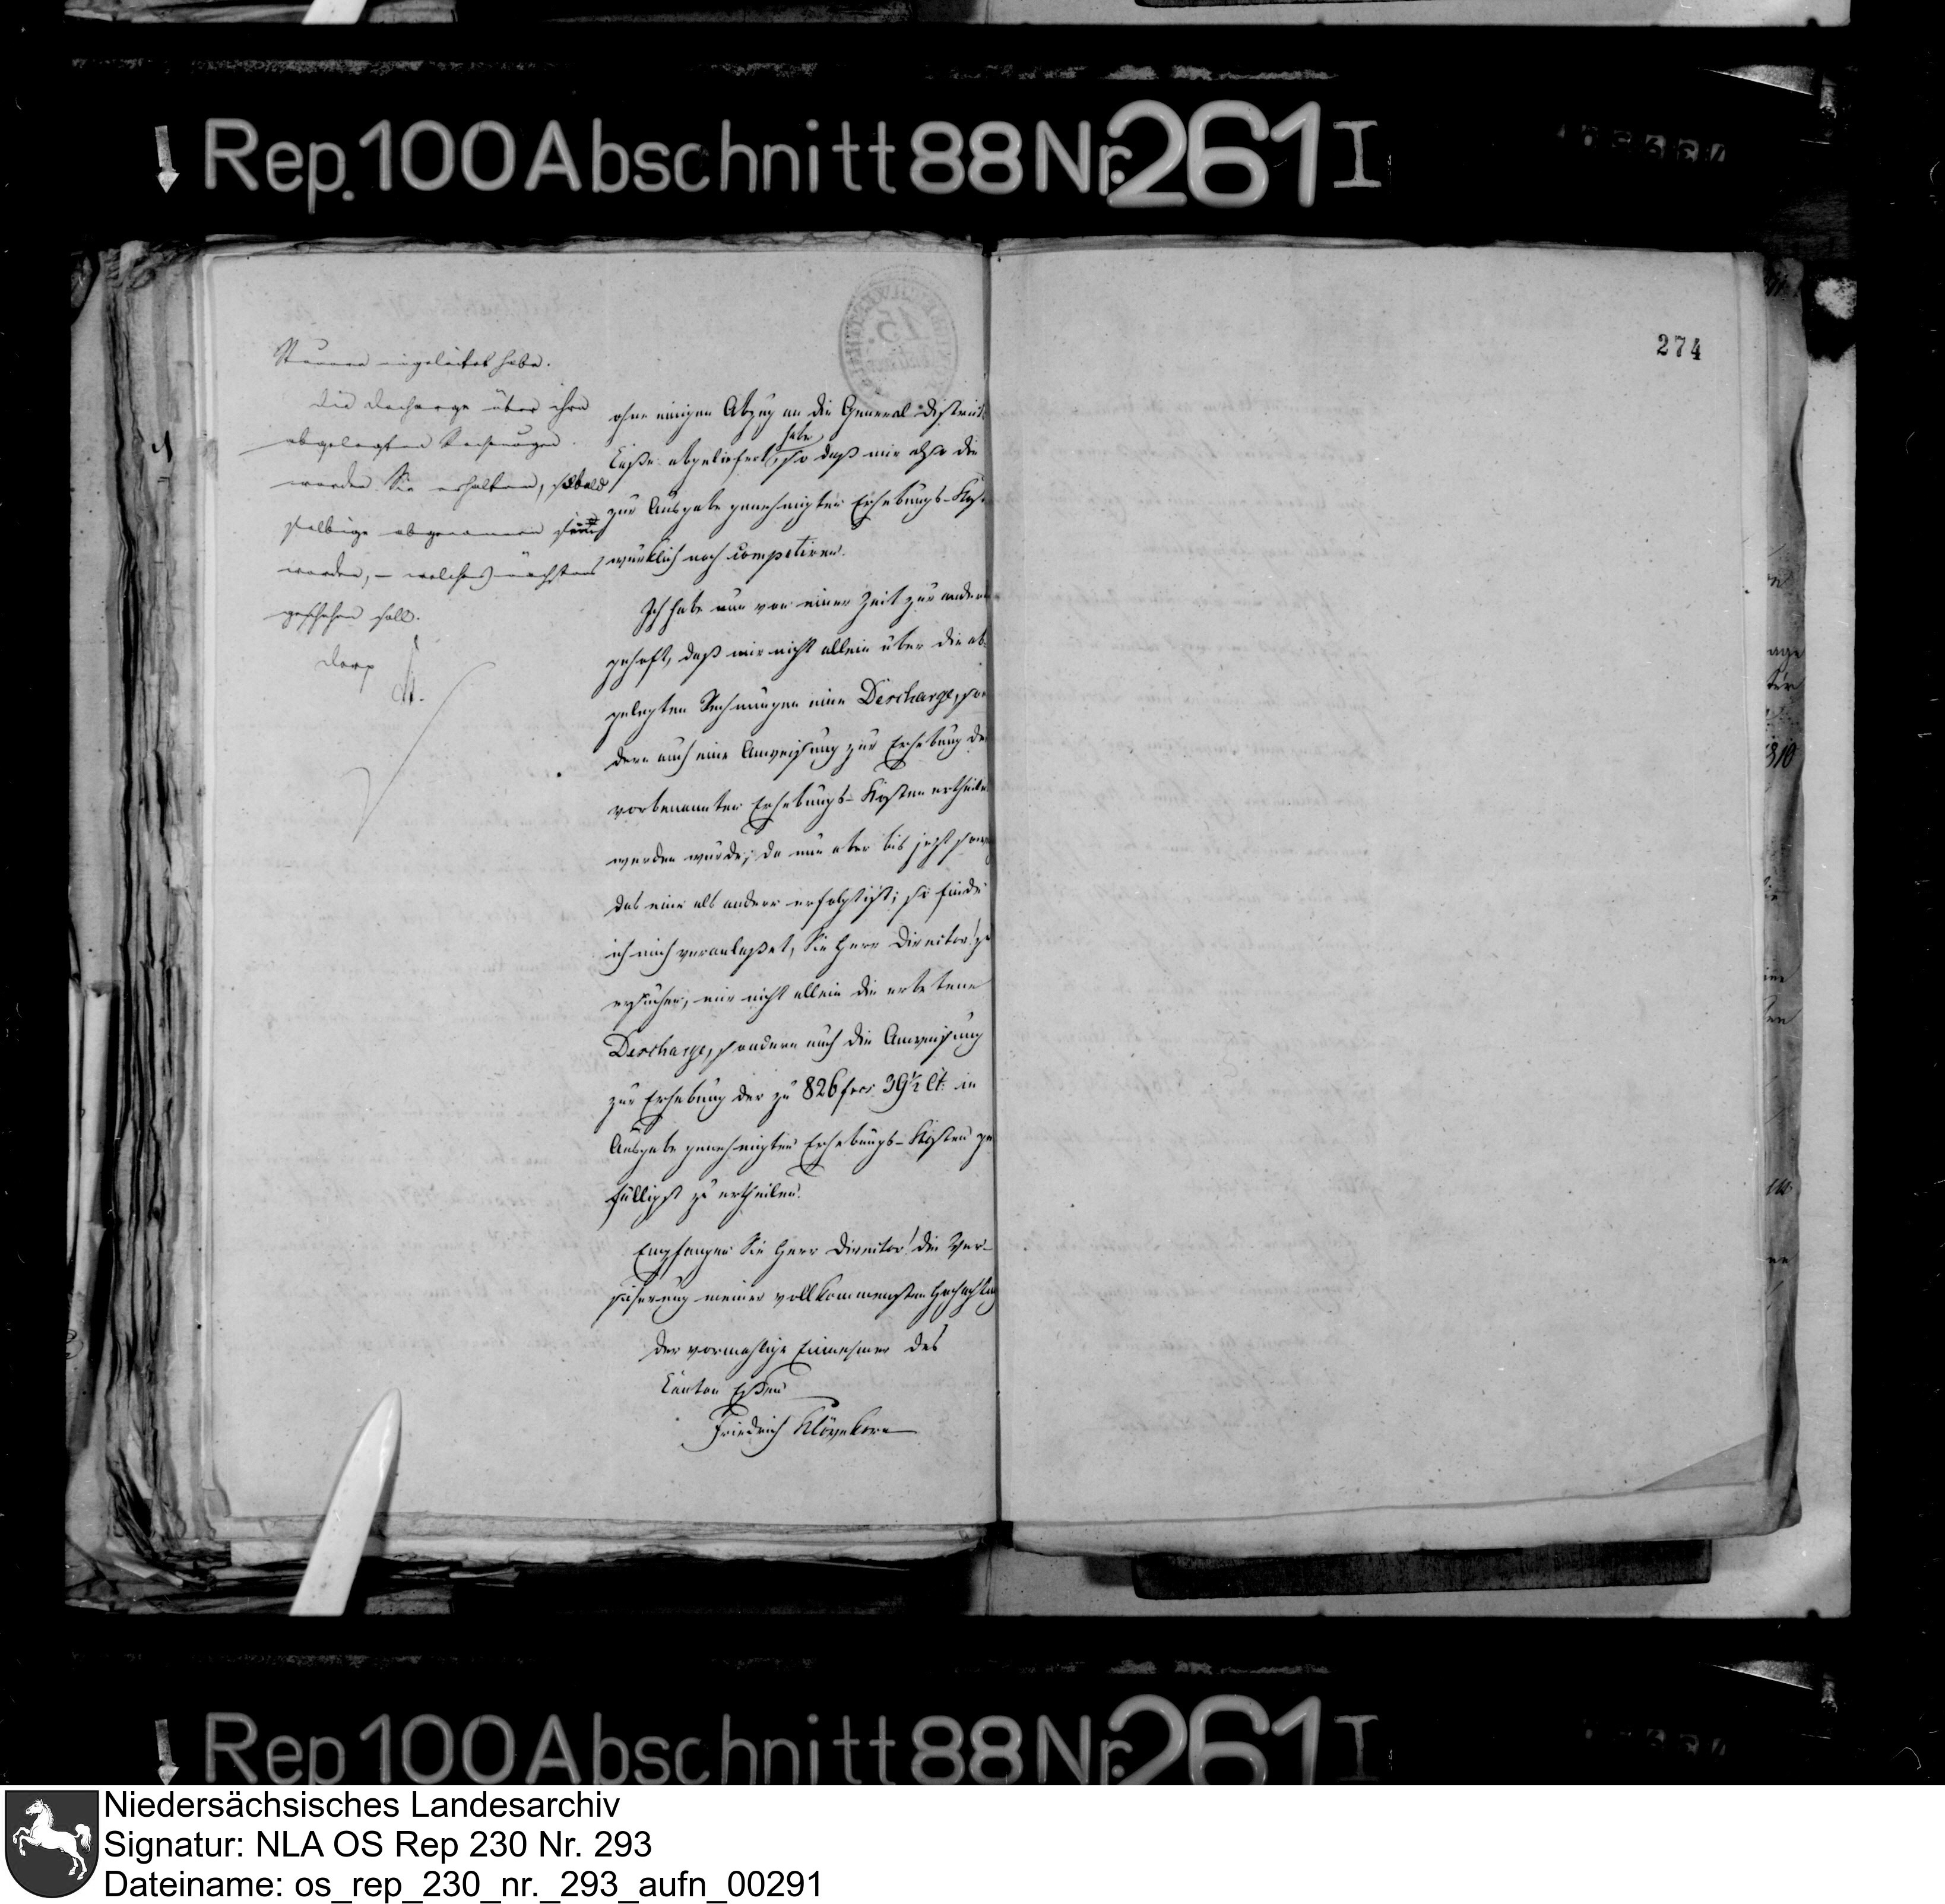 Rep. 100 Abschnitt 88 Nr. 261 I
274
Steuern eingeleitet habe.
Die Decharge über ihre
abgelegten Rechnungen
werden Sie erhalten, sobald
selbige abgenommen sein
werden, – welches nächstens
geschehen soll.
ohne einigen Abzug an die General Districts
Casse abgeliefert habe, so daß mir also die
zur Ausgabe genehmigten Erhebungs-Kost
würklich noch competiren.
Ich habe nun von einer Zeit zur andern
gehoft, daß mir nicht allein über die ab
gelegten Rechnungen eine Descharge, son
dern auch eine Anweisung zur Erhebung de
vorbenannten Erhebungs-Kosten ertheilt
werden würde; da nun aber bis jetzt sowo
das eine als andere erfolgt ist; so finde
ich mich veranlaßet, Sie Herr Director! zu
ersuchen, mir nicht allein die erbetene
Descharge, sondern auch die Anweisung
zur Erhebung der zu 826 frcs 39½ Ct. in
Ausgabe genehmigten Erhebungs-Kosten ge
fälligst zu ertheilen.
Empfangen Sie Herr Director! die Ver-
sicherung meiner vollkommensten Hochachtung
Der vormahlige Einnehmer des
Canton Essen
Friedrich Klövekorn
310
Rep 100 Abschnitt 88 Nr. 261 I
Niedersächsisches Landesarchiv
Signatur: NLA OS Rep 230 Nr. 293
Dateiname: os_rep_230_nr._293_aufn_00291